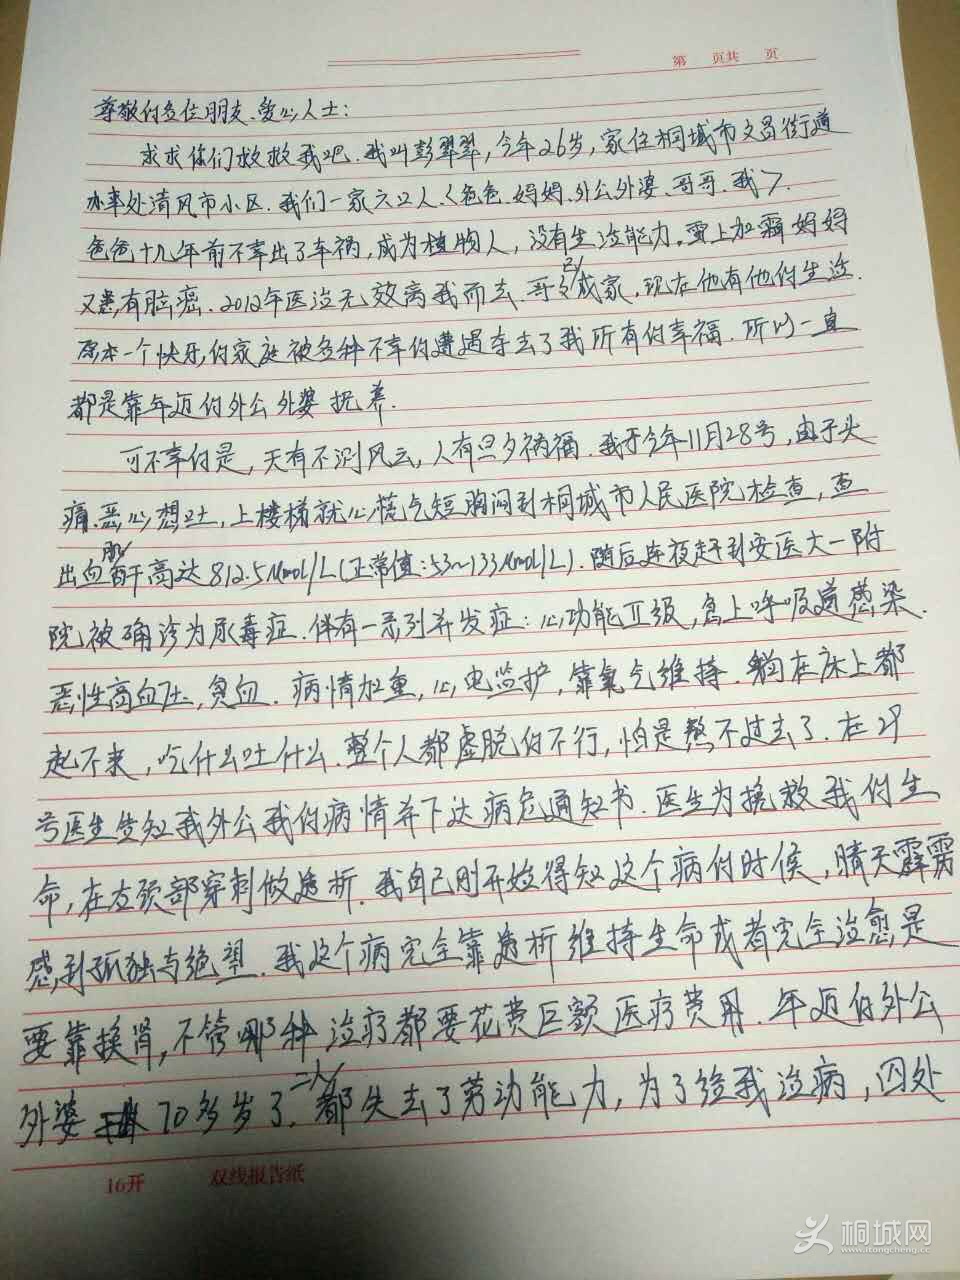 第 页共 页
尊敬的各位朋友、爱心人士:
求求你们救救我吧.我叫彭翠翠,今年26岁,家住桐城市文昌街道
办事处清风市小区.我们一家六口人.<爸爸.妈妈.外公外婆.哥哥.我>.
爸爸十九年前不幸出了车祸,成为植物人,没有生活能力.雪上加霜妈妈
又患有脑癌.2012年医治无效离我而去.哥哥已成家.现在他有他的生活.
原本一个快乐的家庭被各种不幸的遭遇夺去了我所有的幸福.所以一直
都是靠年迈的外公外婆抚养.
可不幸的是,天有不测风云,人有旦夕祸福.我于今年11月28号,由于头
痛.恶心想吐,上楼梯就心慌气短胸闷到桐城市人民医院检查,查
出血肌酐高达812.5μmol/L(正常值:53~133μmol/L).随后连夜赶到安医大一附
院被确诊为尿毒症.伴有一系列并发症:心功能Ⅱ级,急上呼吸道感染.
恶性高血压,贫血.病情加重,心电监护,靠氧气维持.躺在床上都
起不来,吃什么吐什么.整个人都虚脱的不行,怕是熬不过去了.在29
号医生告知我外公我的病情并下达病危通知书.医生为抢救我的生
命,在左颈部穿刺做透析.我自己刚开始得知这个病的时候,晴天霹雳
感到孤独与绝望.我这个病完全靠透析维持生命或者完全治愈是
要靠换肾,不管哪种治疗都要花费巨额医疗费用.年迈的外公
外婆70多岁了.二人都失去了劳动能力,为了给我治病,四处
16开 双线报告纸
桐城网
www.itongcheng.cc